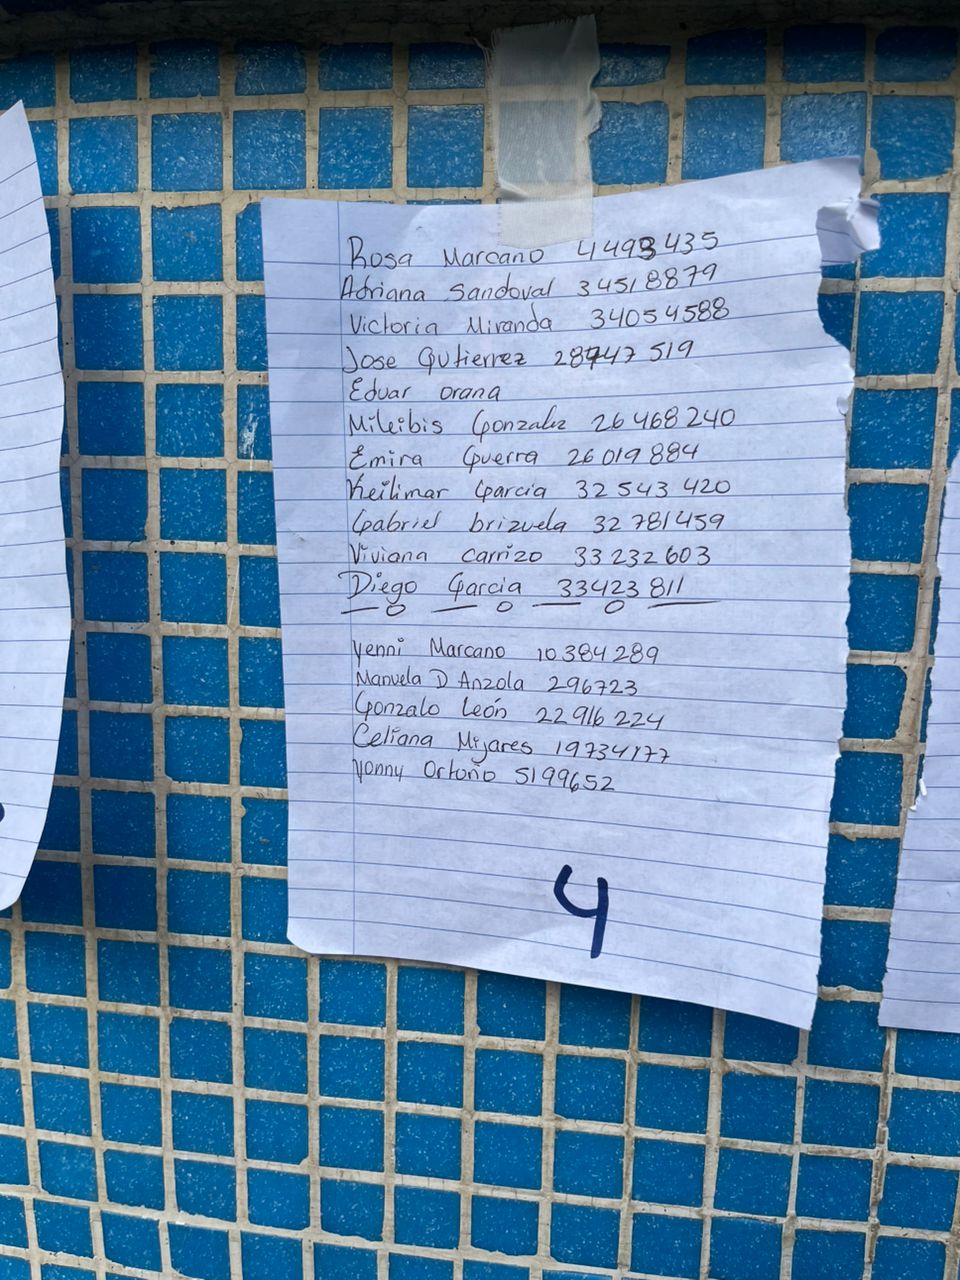 Rosa Marcano 4493435
Adriana Sandoval 34518879
Victoria Miranda 34054588
Jose Gutierrez 28447519
Eduar orana
Mileibis Gonzalez 26468240
Emira Guerra 26019884
Keilimar Garcia 32543420
Gabriel brizuela 32781459
Viviana Carrizo 33232603
Diego Garcia 33423811
Yenni Marcano 10384289
Manuela D Anzola 296723
Gonzalo León 22916224
Celiana Mijares 19734177
Yonny Ortuño 5199652
4